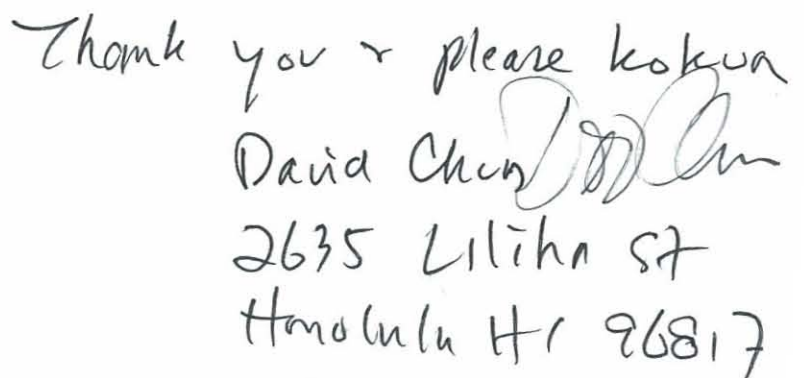 Thank you & please kokua
David Chun
2635 Liliha St
Honolulu HI 96817